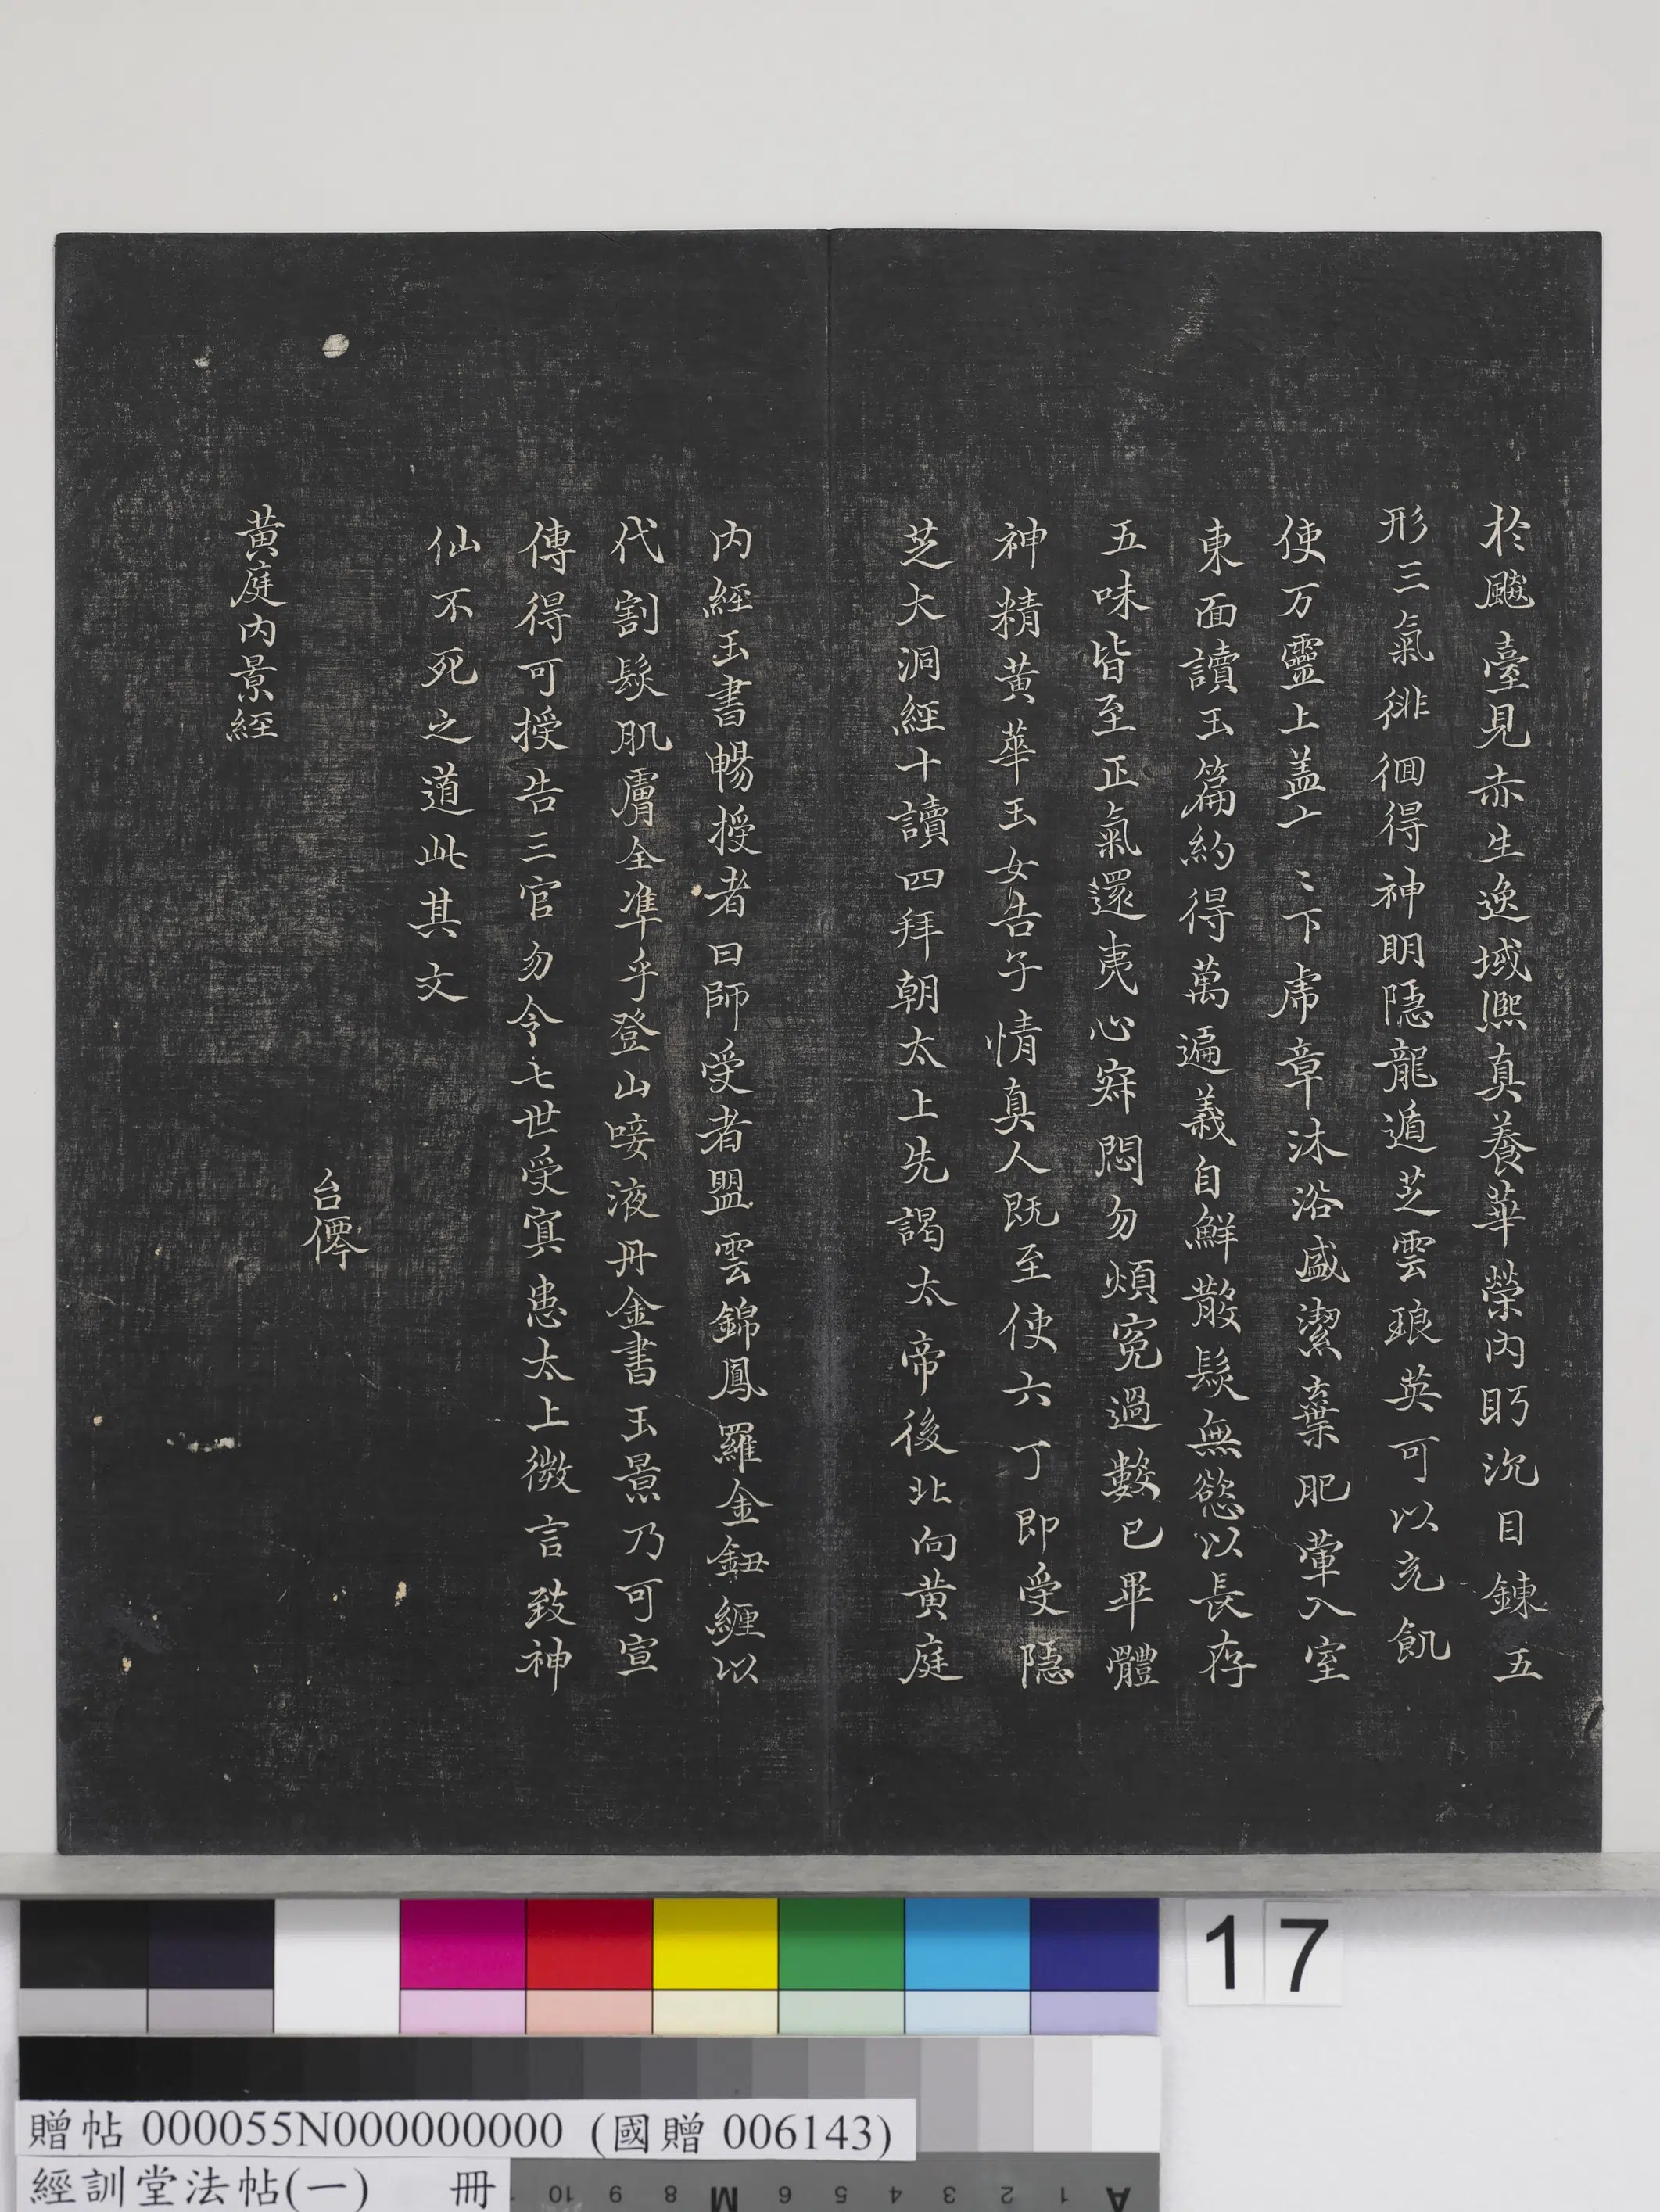 於飈臺見赤生逸域熈真養華榮内眄沉目錬五
形三氣徘徊得神明隱龍遁芝雲琅英可以充飢
使万靈上盖亠〻下虎章沐浴盛潔棄肥葷入室
東面讀玉篇約得萬遍義自鮮散髮無慾以長存
五味皆至正氣還夷心寂悶勿煩寃過數已畢體
神精黄華玉女告子情真人既至使六丁即受隱
芝大洞經十讀四拜朝太上先謁太帝後北向黄庭
内經玉書暢授者曰師受者盟雲錦鳳羅金鈕纏以
代割髮肌膚全準乎登山唼液丹金書玉景乃可宣
傳得可授告三官勿令七世受冥患太上微言致神
仙不死之道此其文
台僊
黄庭内景經
17
贈帖 000055N000000000 (國贈 006143)
經訓堂法帖(一) 冊
10 9 8 M 6 5 4 3 2 1 A